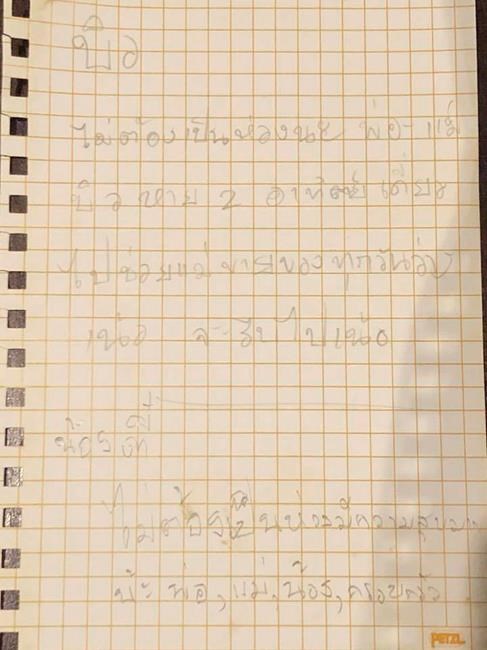 บิว
ไม่ต้องเป็นห่วงนะ พ่อ-แม่
บิวหาย 2 อาทิตย์ เดี๋ยว
ไปช่วยแม่ขายของทุกวัน
เน้อ จะรีบไปเน้อ
น้อง
ไม่ต้องเป็นห่วงมีความสุข
พ่อ, แม่, น้อง, ครอบครัว
PETZL